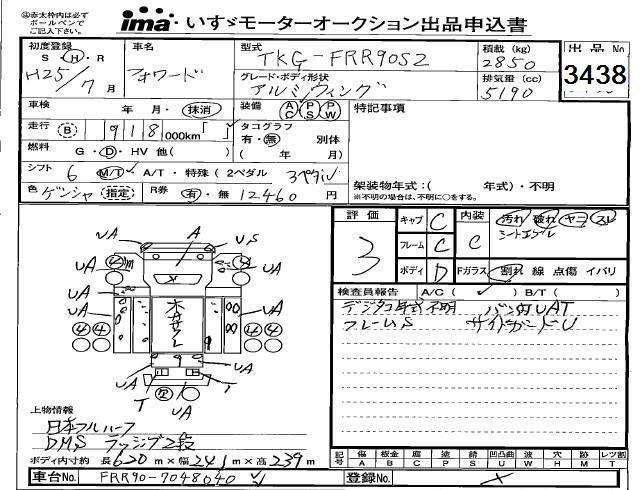 ㊟赤太枠内は必ず
ボールペンで
ご記入下さい。
ima いすゞモーターオークション出品申込書
初度登録 S H・R
H25/7月
車名
フォワード
型式
TKG-FRR90S2
グレード・ボディ形状
アルミウィング
積載 (kg)
2850
排気量 (cc)
5190
出品No
3438
車検 年 月・抹消
装備 AC PS PW
特記事項
走行 B 918 000km「 」
タコグラフ
有・無 別体
( 年 月)
燃料 G・D・HV 他( )
シフト 6 M/T・A/T・特殊 (2ペダル 3ペダル)
色 ゲンシャ 指定 R券 有・無 12460円
架装物年式:( 年式)・不明
※不明の場合は、不明に○をする。
評価
3
キャブ C
フレーム C
ボディ D
内装 C
汚れ 破れ ヤニ スレ
シートコゲル
Fガラス 割れ 線 点傷 イバリ
検査員報告 A/C (✓) B/T ( )
デジタコ年式不明 バン内UAT
フレームS サイドガードU
A
US
UA
UA
UA
UA
UA
UA
UA
UA
T
UA
上物情報
日本フルハーフ
DMS ラッシング2段
ボディ内寸約 長620m×幅241m×高239m
記号 傷A 板金B 腐C 塗P 錆S 凹凸曲U 波W 穴H 跡M レツ割T
車台No. FRR90-7048640
登録No. ×